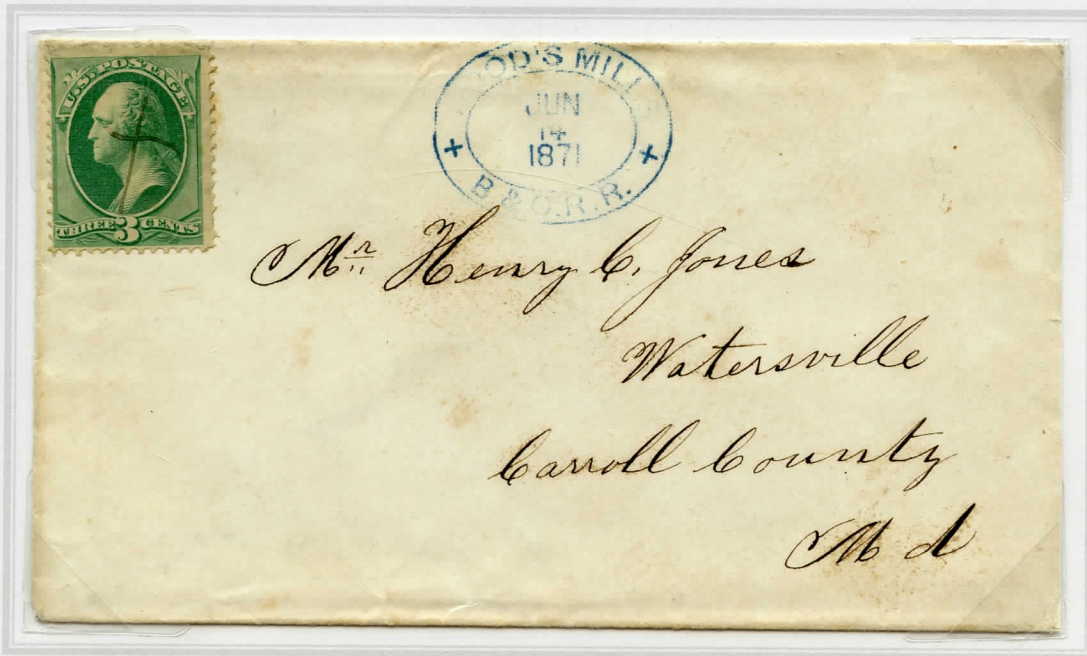 U.S. POSTAGE
THREE 3 CENTS
MILLS
JUN
14
1871
B & O. R. R.
Mr. Henry C. Jones
Watersville
Carroll County
Md